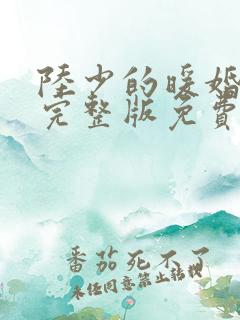 陸少的暖婚
完整版免費
番茄死不了
未经同意禁止转载